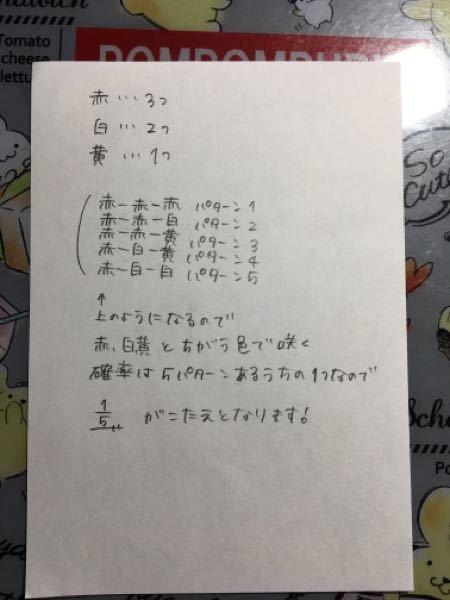 andwich
Tomato
cheese
lettu
POMPOMPURIN
So
Cute
赤…3つ
白…2つ
黄…1つ
赤ー赤ー赤 パターン1
赤ー赤ー白 パターン2
赤ー赤ー黄 パターン3
赤ー白ー黄 パターン4
赤ー白ー白 パターン5
↑
上のようになるので
赤、白黄とちがう色で咲く
確率は5パターンあるうちの1つなので
1/5 がこたえとなります!